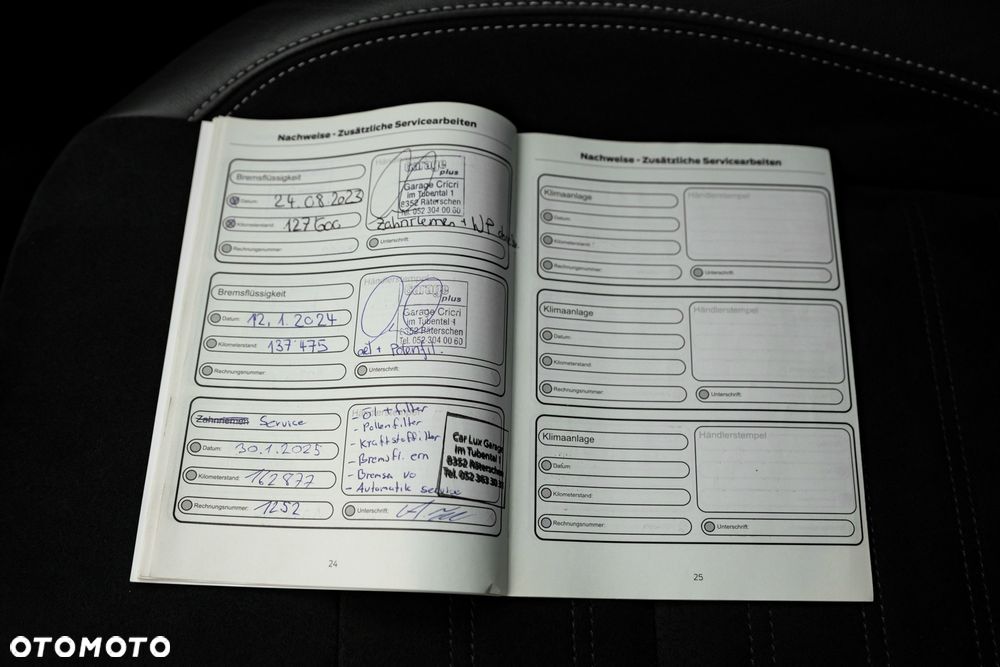 Nachweise - Zusätzliche Servicearbeiten
Bremsflüssigkeit
Datum: 24.08.2023
Kilometerstand: 127600
Rechnungsnummer:
garage
plus
Garage Cricri
im Tubental 1
8352 Räterschen
Tel. 052 304 00 60
Zahnriemen + WP
Unterschrift:
Bremsflüssigkeit
Datum: 12.1.2024
Kilometerstand: 137475
Rechnungsnummer:
Händlerstempel
garage
plus
Garage Cricri
im Tubental 1
8352 Räterschen
Tel. 052 304 00 60
oel + Polenfil.
Unterschrift:
Zahnriemen Service
Datum: 30.1.2025
Kilometerstand: 162877
Rechnungsnummer: 1252
- Öl + filter
- Pollenfilter
- Kraftstoffilter
- Bremsfl. ern
- Bremsen vo
- Automatik service
Car Lux Garage
im Tubental 1
8352 Räterschen
Tel. 052 363 30 3
Unterschrift:
24
Nachweise - Zusätzliche Servicearbeiten
Klimaanlage
Datum:
Kilometerstand:
Rechnungsnummer:
Händlerstempel
Unterschrift:
Klimaanlage
Datum:
Kilometerstand:
Rechnungsnummer:
Händlerstempel
Unterschrift:
Klimaanlage
Datum:
Kilometerstand:
Rechnungsnummer:
Händlerstempel
Unterschrift:
25
OTOMOTO